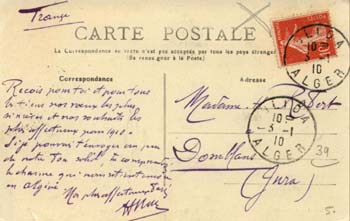 France
CARTE POSTALE
La Correspondance au recto n'est pas acceptée par tous les pays étrangers
(Se renseigner à la Poste)
Correspondance
Adresse
BLIDA
10
3 -1
10
ALGER
BLIDA
10
3 -1
10
ALGER
Reçois pour toi et pour tous
les tiens nos vœux les plus
sincères et nos souhaits les
plus affectueux pour 1910.
Si je pouvais t'envoyer un peu
de notre
le charme qui nous retient
en Algérie
Nos plus affectueux
Madame
Domblans
(Jura)
39
5.